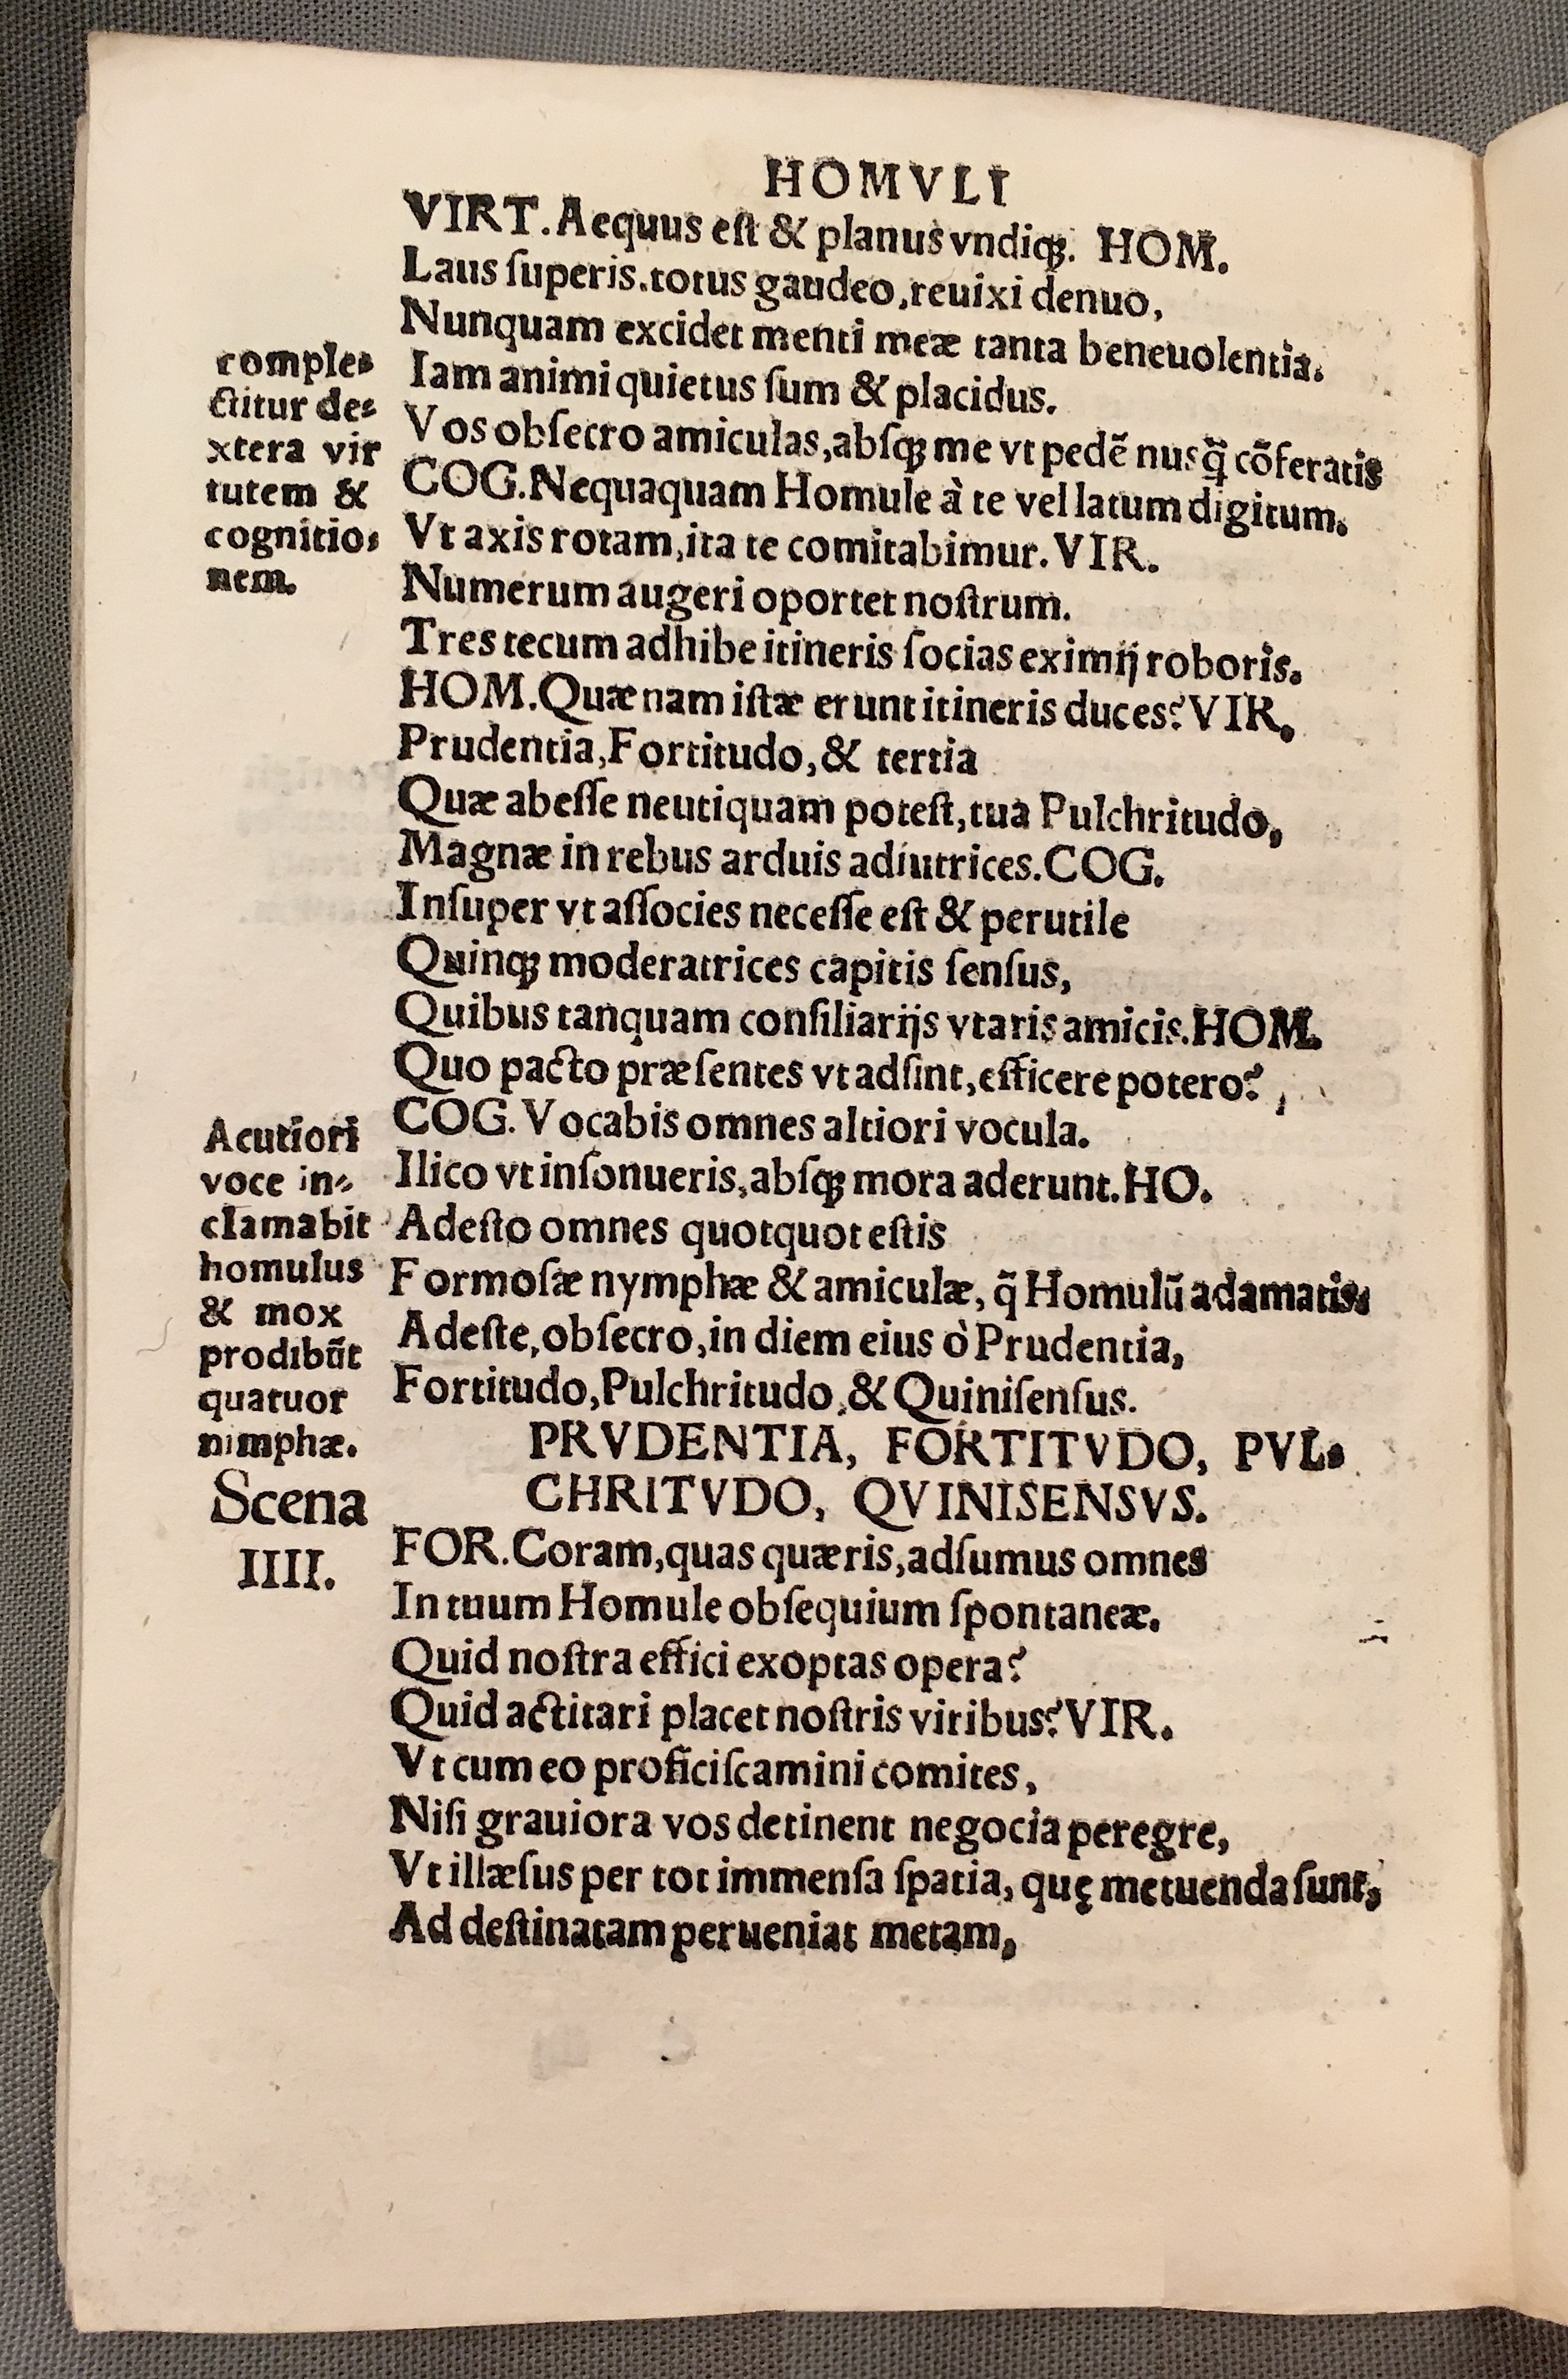 HOMVLI
VIRT. Aequus eſt & planus vndiqꝫ. HOM.
Laus ſuperis. totus gaudeo, reuixi denuo,
Nunquam excidet menti meæ tanta beneuolentia.
Iam animi quietus ſum & placidus.
Vos obſecro amiculas, abſqꝫ me vt pedẽ nusq̃ cõferatis
COG. Nequaquam Homule à te vel latum digitum.
Vt axis rotam, ita te comitabimur. VIR.
Numerum augeri oportet noſtrum.
Tres tecum adhibe itineris ſocias eximij roboris.
HOM. Quæ nam iſtæ erunt itineris duces? VIR.
Prudentia, Fortitudo, & tertia
Quæ abeſſe neutiquam poteſt, tua Pulchritudo,
Magnæ in rebus arduis adiutrices. COG.
Inſuper vt aſſocies neceſſe eſt & perutile
Quinqꝫ moderatrices capitis ſenſus,
Quibus tanquam conſiliarijs vtaris amicis. HOM.
Quo pacto præſentes vt adſint, efficere potero?
COG. Vocabis omnes altiori vocula.
Ilico vt inſonueris, abſqꝫ mora aderunt. HO.
Adeſto omnes quotquot eſtis
Formoſæ nymphæ & amiculæ, q̃ Homulũ adamatis.
Adeſte, obſecro, in diem eius ò Prudentia,
Fortitudo, Pulchritudo, & Quiniſenſus.
PRVDENTIA, FORTITVDO, PVL-
CHRITVDO, QVINISENSVS.
FOR. Coram, quas quæris, adſumus omnes
In tuum Homule obſequium ſpontaneæ.
Quid noſtra effici exoptas opera?
Quid actitari placet noſtris viribus? VIR.
Vt cum eo proficiſcamini comites,
Niſi grauiora vos detinent negocia peregre,
Vt illæſus per tot immenſa ſpatia, quę metuenda ſunt,
Ad deſtinatam perueniat metam,
comple-
ctitur de-
xtera vir
tutem &
cognitio-
nem.
Acutiori
voce in-
clamabit
homulus
& mox
prodibũt
quatuor
nimphæ.
Scena
IIII.